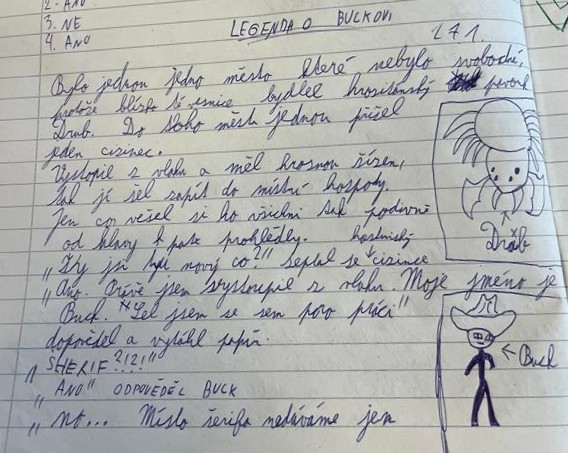 2. ANO
3. NE
4. ANO
LEGENDA O BUCKOVI
171.
Bylo jednou jedno město které nebylo svobodné,
protože blízko té vesnice bydlel hrozitánský
Dráb. Do toho města jednou přišel
jeden cizinec.
Vystoupil z vlaku a měl hroznou žízen,
tak jí šel zapít do místní hospody.
Jen co vešel si ho všichni tak podivně
od hlavy k patě prohlédly.
hostinský
„Ty jsi tu nový co?" zeptal se cizince
„Ano. Právě jsem vystoupil z vlaku. Moje jméno je
Buck. Šel jsem se sem pro práci"
dopověděl a vytáhl papír.
„SHERIF?!?!"
„ANO" ODPOVĚDĚL BUCK
„No... Místo šerifa nedáváme jen
Dráb
Buck